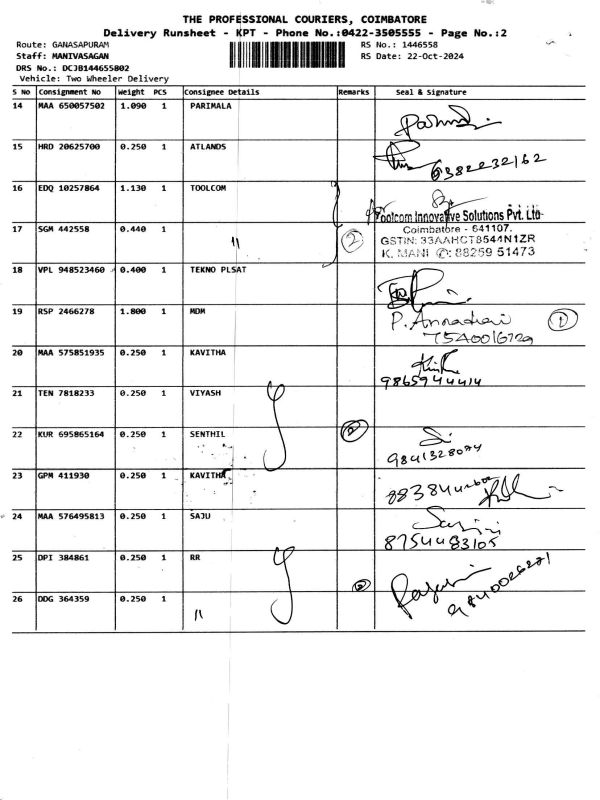 THE PROFESSIONAL COURIERS, COIMBATORE
Delivery Runsheet - KPT - Phone No.:0422-3505555 - Page No.:2
Route: GANASAPURAM RS No.: 1446558
Staff: MANIVASAGAN RS Date: 22-Oct-2024
DRS No.: DCJB144655802
Vehicle: Two Wheeler Delivery
S No Consignment No Weight PCS Consignee Details Remarks Seal & Signature
14 MAA 650057502 1.090 1 PARIMALA
15 HRD 20625700 0.250 1 ATLANDS
6382232162
16 EDQ 10257864 1.130 1 TOOLCOM
Toolcom Innovative Solutions Pvt. Ltd
17 SGM 442558 0.440 1 11 2 Coimbatore - 641107.
GSTIN: 33AAHCT8544N1ZR
K. MANI ✆: 88259 51473
18 VPL 948523460 0.400 1 TEKNO PLSAT
19 RSP 2466278 1.800 1 MDM
P. Annadurai 1
7540016729
20 MAA 575851935 0.250 1 KAVITHA
9865944414
21 TEN 7818233 0.250 1 VIYASH
22 KUR 695865164 0.250 1 SENTHIL 2
9841328074
23 GPM 411930 0.250 1 KAVITHA
24 MAA 576495813 0.250 1 SAJU
8754483105
25 DPI 384861 0.250 1 RR 2
9840026271
26 DDG 364359 0.250 1 11